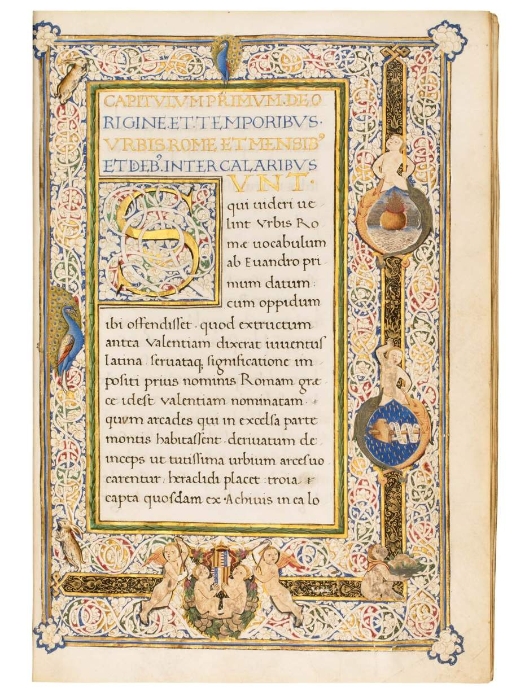 CAPITVLVM PRIMVM. DE O
RIGINE. ET. TEMPORIBVS ·
VRBIS. ROME. ET MENSIBꝰ
ET DEBꝰ. INTERCALARIBVS
SVNT ·
qui uideri ue
lint Vrbis Ro
mæ uocabulum
ab Euandro pri
mum datum :
cum oppidum
ibi offendisset · quod extructum
antea Valentiam dixerat iuuentus
latina · seruataq; significatione im
positi prius nominis Romam græ
ce idest valentiam nominatam ·
quum arcades qui in excelsa parte
montis habitassent · deriuatum de
inceps ut tutissima urbium arces uo
carentur · heraclidi placet · troia
capta quosdam ex · Achiuis in ea lo